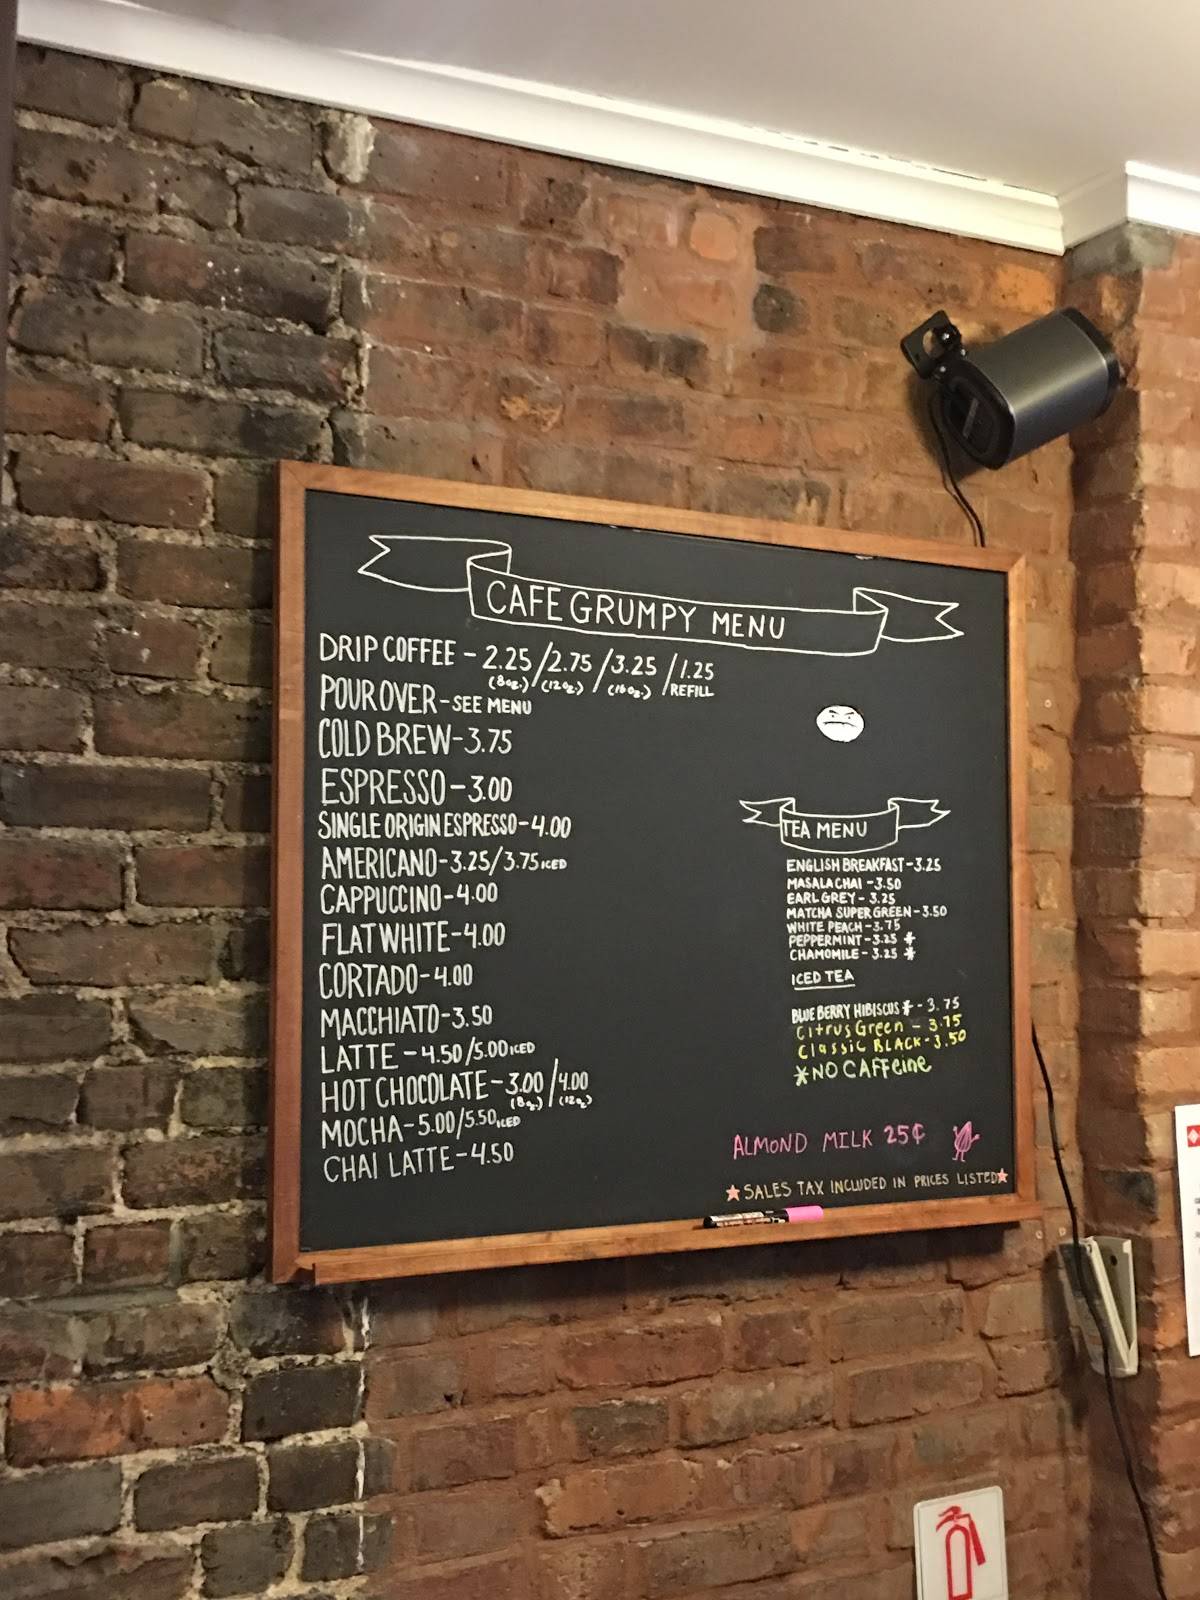 CAFE GRUMPY MENU
DRIP COFFEE - 2.25 / 2.75 / 3.25 / 1.25
(8oz.) (12oz.) (16oz.) REFILL
POUR OVER - SEE MENU
COLD BREW - 3.75
ESPRESSO - 3.00
SINGLE ORIGIN ESPRESSO - 4.00
AMERICANO - 3.25/3.75 ICED
CAPPUCCINO - 4.00
FLAT WHITE - 4.00
CORTADO - 4.00
MACCHIATO - 3.50
LATTE - 4.50/5.00 ICED
HOT CHOCOLATE - 3.00 / 4.00
(8oz.) (12oz.)
MOCHA - 5.00/5.50 ICED
CHAI LATTE - 4.50
TEA MENU
ENGLISH BREAKFAST - 3.25
MASALA CHAI - 3.50
EARL GREY - 3.25
MATCHA SUPER GREEN - 3.50
WHITE PEACH - 3.75
PEPPERMINT - 3.25 *
CHAMOMILE - 3.25 *
ICED TEA
BLUEBERRY HIBISCUS * - 3.75
Citrus Green - 3.75
Classic BLACK - 3.50
*NO CAFFeine
ALMOND MILK 25¢
★SALES TAX INCLUDED IN PRICES LISTED★